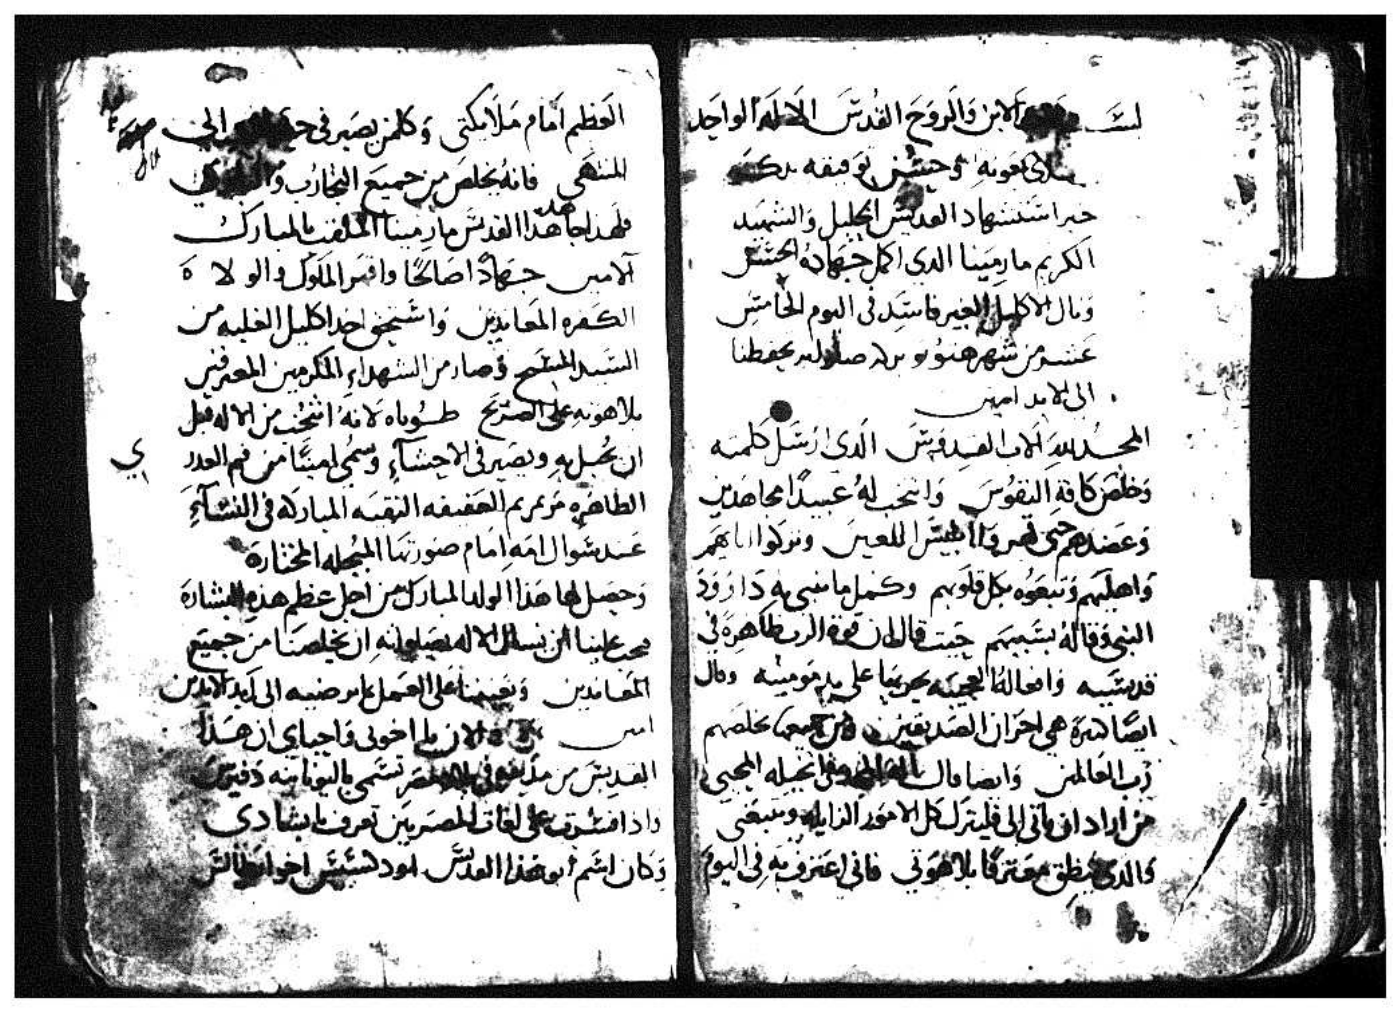 الابن والروح القدس الاله الواحد
نبتدي بعونه وحسن توفيقه بكتب
خبر استشهاد القديس الجليل والشهيد
الكريم مار مينا الدي اكمل جهاده الحسن
ونال الاكليل الغير فاسد في اليوم الخامس
عشر من شهر هتور بركة صلواته تحفظنا
الى الابد امين
المجد لله الاب الضابط الدي ارسل كلمته
وخلص كافة النفوس وانتخب له عبيدًا مجاهدين
وعضدهم حتى قهروا ابليس اللعين وتركوا اباهم
واهلهم وتبعوه بكل قلوبهم وكمل ما تنبى به داوود
النبي وقاله بسببهم حيت قال ان قوة الرب ظاهرة في
قديسيه وافعاله العجيبه يجريها على يد مومنيه وقال
ايضًا كتيرة هي احزان الصديقين ومن جميعها يخلصهم
رب العالمين وايضا قال في انجيله المحيي
من اراد ان ياتي الي فليترك كل الامور الزايله ويتبعني
والدي ينطق معترفًا بلاهوتي فاني اعترف به في اليوم
العظيم امام ملايكتي وكلمن يصبر في الى
المنتهى فانه يخلص من جميع التجارب
فلهدا جاهد هدا القديس مار مينا الملقب بالمبارك
الامين جهادًا صالحًا وقهر الملوك والولاه
الكفره المعاندين واستحق اخد اكليل الغلبه من
السيد المسيح وصار من الشهداء المكرمين المعترفين
بلاهوته على الصريح طوباه لانه انتخب من الاله قبل
ان يحبل به ويصير في الاحشاء وسمي امينًا من فم العدرى
الطاهره مرتمريم العفيفه النقيه المباركه في النساء
عند سوال امه امام صورتها المبجله المختارة
وحصل لها هدا الولد المبارك من اجل عظم هده البشارة
يجب علينا ان نسال الاله بصلواته ان يخلصنا من جميع
المعاندين ويعيننا على العمل بما يرضيه الى ابد الابدين
امين والان يا اخوتي واحباي ان هدا
القديس من مدينه في تسمى باليونانيه دقيوس
وادا فسرت على لغات المصريين تعرف بابشادي
وكان اسم ابو هدا القديس اودكسيس اخو اناطاليس